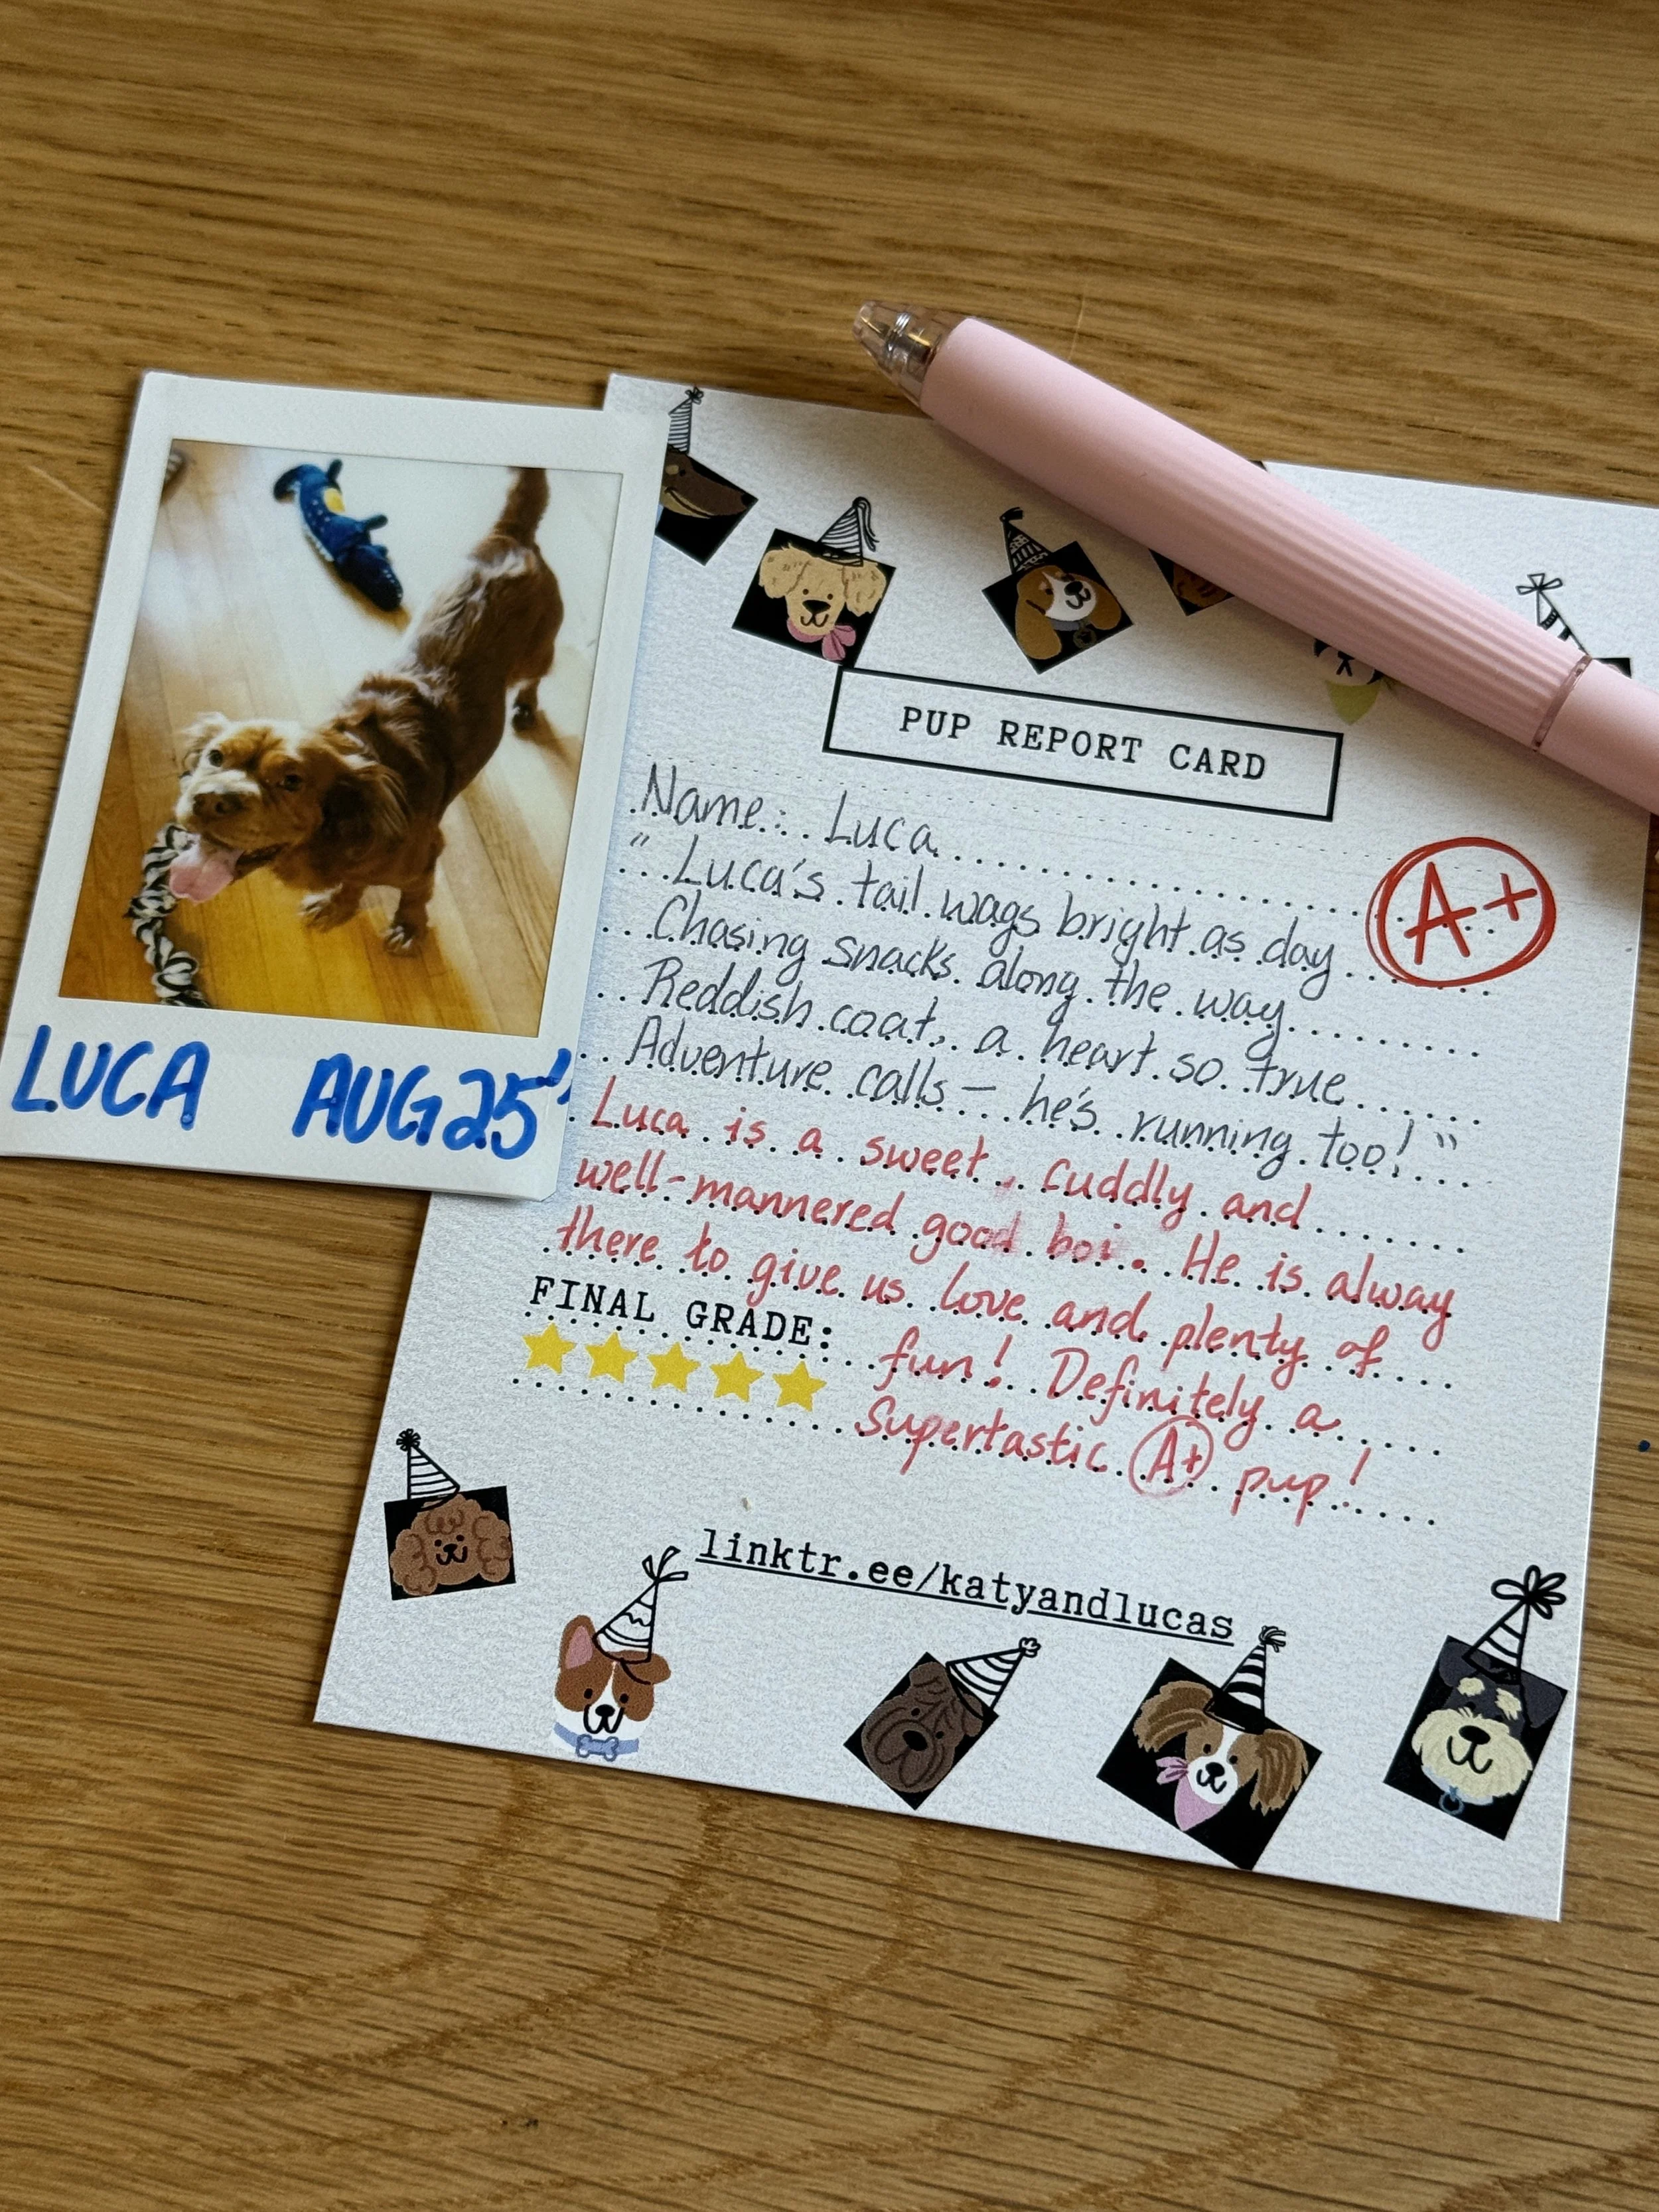 LUCA AUG 25'
PUP REPORT CARD
Name: Luca
A+
"Luca's tail wags bright as day
Chasing snacks along the way
Reddish coat, a heart so true
Adventure calls — he's running too!"
Luca is a sweet, cuddly and
well-mannered good boi. He is alway
there to give us love and plenty of
FINAL GRADE: fun! Definitely a
Supertastic A+ pup!
linktr.ee/katyandlucas